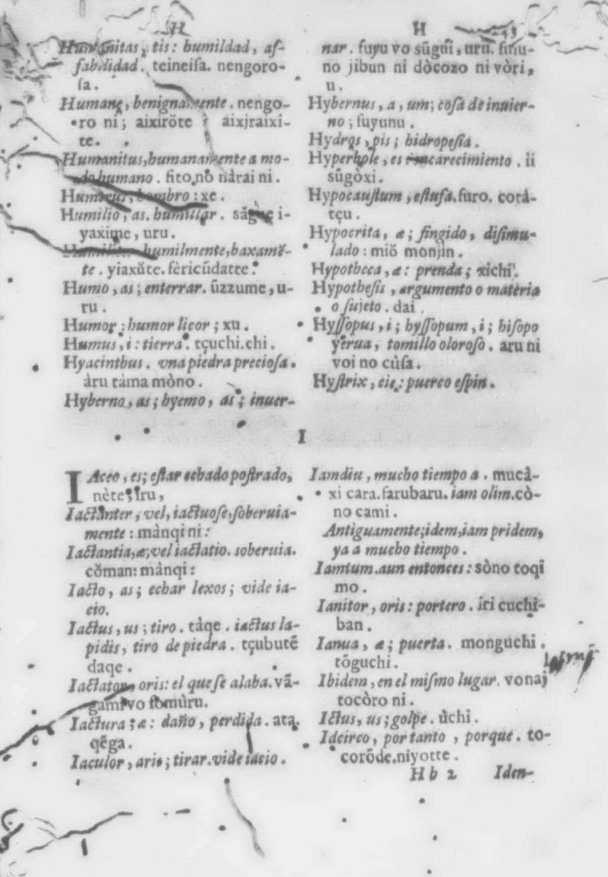 H
Humanitas, tis: humildad, af-
fabilidad. teineiſa. nengoro-
ſa.
Humane, benignamente. nengo-
ro ni; aixirõte aixiraixi-
te.
Humanitus, humanamente a mo-
do humano. fito no nàrai ni.
Humerus, hombro: xe.
Humilio, as. humillar. i-
yaxime, uru.
humilmente, baxamẽ-
te. yiaxŭte. ſericŭdatte.
Humo, as; enterrar. ŭzzume, u-
ru.
Humor; humor licor; xu.
Humus, i: tierra. tçuchi. chi.
Hyacinthus. vna piedra precioſa.
àru tàma mòno.
Hyberno, as; hyemo, as; inuer-
H
nar. fuyu vo sŭguĩ, uru. fuiu-
no jibun ni dòcozo ni vòri,
u.
Hybernus, a, um; coſa de inuier-
no; fuyunu.
Hydros, pis; hidropeſia.
Hyperbole, es encarecimiento. ii
sŭgòxi.
Hypocauſtum, eſtufa. furo. cotà-
tçu.
Hypocrita, æ; fingido, diſimu-
lado: miŏ monjin.
Hypotheca, æ: prenda; xichi.
Hypotheſis, argumento o materia
o ſujeto. dai.
Hyſſopus, i; byſſopum, i; hiſopo
yerua, tomillo oloroſo. aru ni
voi no cùſa.
Hyſtrix, cis: puerco eſpin.
I
IAceo, es; eſtar echado poſtrado,
nète; iru,
Iactanter, vel, iactuoſe, ſoberuia-
mente: mànqi ni:
Iactantia, æ, vel iactatio. soberuia.
cŏman: mànqi:
Iacto, as; echar lexos; vide ia-
cio.
Iactus, us; tiro. tàqe. iactus la-
pidis, tiro de piedra. tçubutẽ
daqe.
Iactator, oris: el que ſe alaba. vã-
gamivo fomùru.
Iactura; æ: daño, perdida. ata.
qẽga.
Iaculor, aris; tirar. vide iacio.
Iamdiu, mucho tiempo a. mucà-
xi cara. farubaru. iam olim. cò-
no cami.
Antiguamente; idem, iam pridem,
ya a mucho tiempo.
Iamtum. aun entonces: sòno toqi
mo.
Ianitor, oris: portero. iri cuchi-
ban.
Ianua, æ; puerta. monguchi.
tŏguchi.
Ibidem, en el miſmo lugar. vonaj
tocòro ni.
Ictus, us; golpe. ùchi.
Idcirco, por tanto, porque. to-
corŏde. niyotte.
H h 2 Iden-